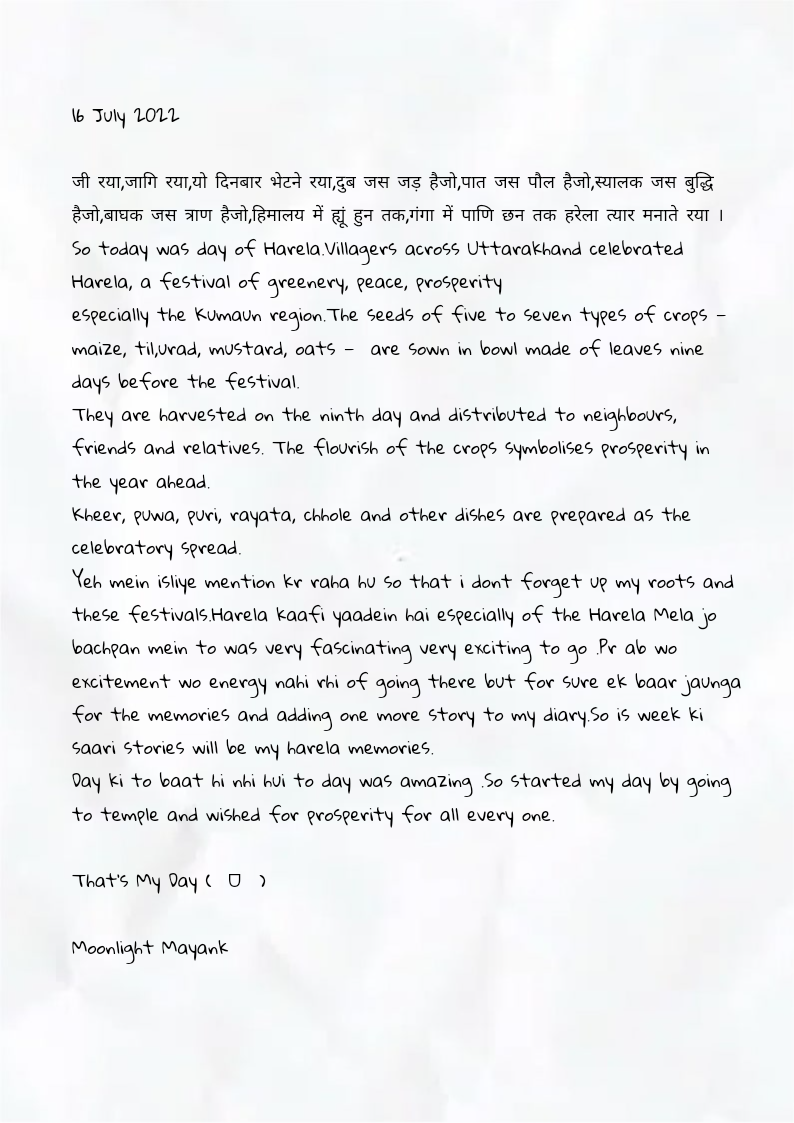 16 July 2022
जी रया,जागि रया,यो दिनबार भेटने रया,दुब जस जड़ हैजो,पात जस पौल हैजो,स्यालक जस बुद्धि
हैजो,बाघक जस त्राण हैजो,हिमालय में ह्यूं हुन तक,गंगा में पाणि छन तक हरेला त्यार मनाते रया ।
So today was day of Harela.Villagers across Uttarakhand celebrated
Harela, a festival of greenery, peace, prosperity
especially the Kumaun region.The seeds of five to seven types of crops –
maize, til,urad, mustard, oats –  are sown in bowl made of leaves nine
days before the festival.
They are harvested on the ninth day and distributed to neighbours,
friends and relatives. The flourish of the crops symbolises prosperity in
the year ahead.
Kheer, puwa, puri, rayata, chhole and other dishes are prepared as the
celebratory spread.
Yeh mein isliye mention kr raha hu so that i dont forget up my roots and
these festivals.Harela kaafi yaadein hai especially of the Harela Mela jo
bachpan mein to was very fascinating very exciting to go .Pr ab wo
excitement wo energy nahi rhi of going there but for sure ek baar jaunga
for the memories and adding one more story to my diary.So is week ki
saari stories will be my harela memories.
Day ki to baat hi nhi hui to day was amazing .So started my day by going
to temple and wished for prosperity for all every one.
That's My Day (  ▢  )
Moonlight Mayank